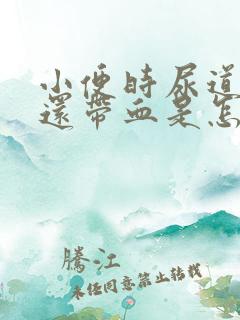 小便時尿道
還帶血是怎
騰江
未经同意禁止转载